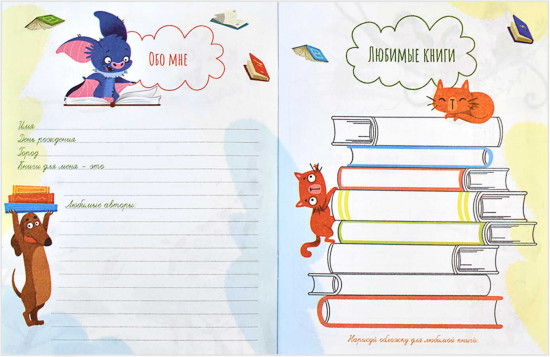 Обо мне
Имя
День рождения
Город
Книги для меня – это
Любимые авторы:
Любимые книги
Нарисуй обложку для любимой книги.